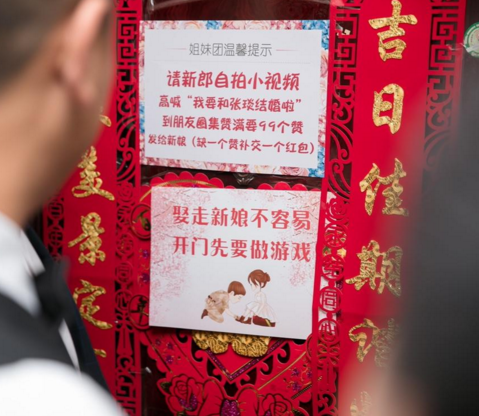 姐妹团温馨提示
请新郎自拍小视频
高喊“我要和张琰结婚啦”
到朋友圈集赞满要99个赞
发给新娘（缺一个赞补交一个红包）
娶走新娘不容易
开门先要做游戏
吉日佳期
美景定